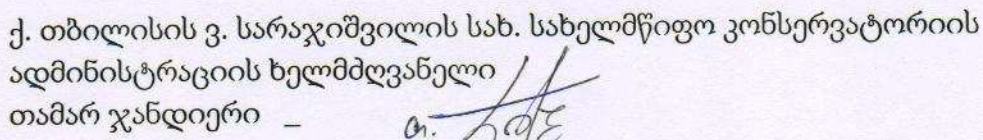 ქ. თბილისის ვ. სარაჯიშვილის სახ. სახელმწიფო კონსერვატორიის
ადმინისტრაციის ხელმძღვანელი
თამარ ჯანდიერი _